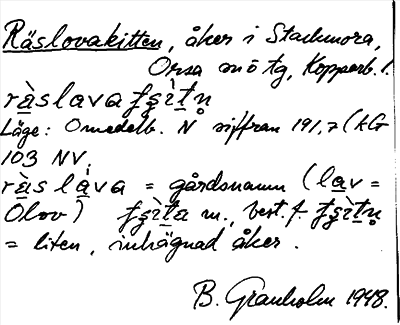 Räslovakitten, åker i Stackmora,
Orsa sn ö tg, Kopparb. l.
ràslava
Läge: Omedelb. N siffran 191,7 (kG
103 NV.
ràs láva = gårdsnamn (lav =
Olov) m., best. f.
= liten, inhägnad åker.
B. Granholm 1948.